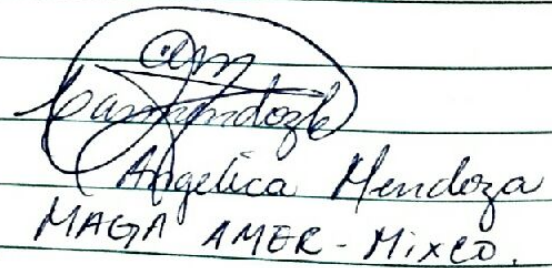 Angelica Mendoza
MAGA AMER - Mixco.